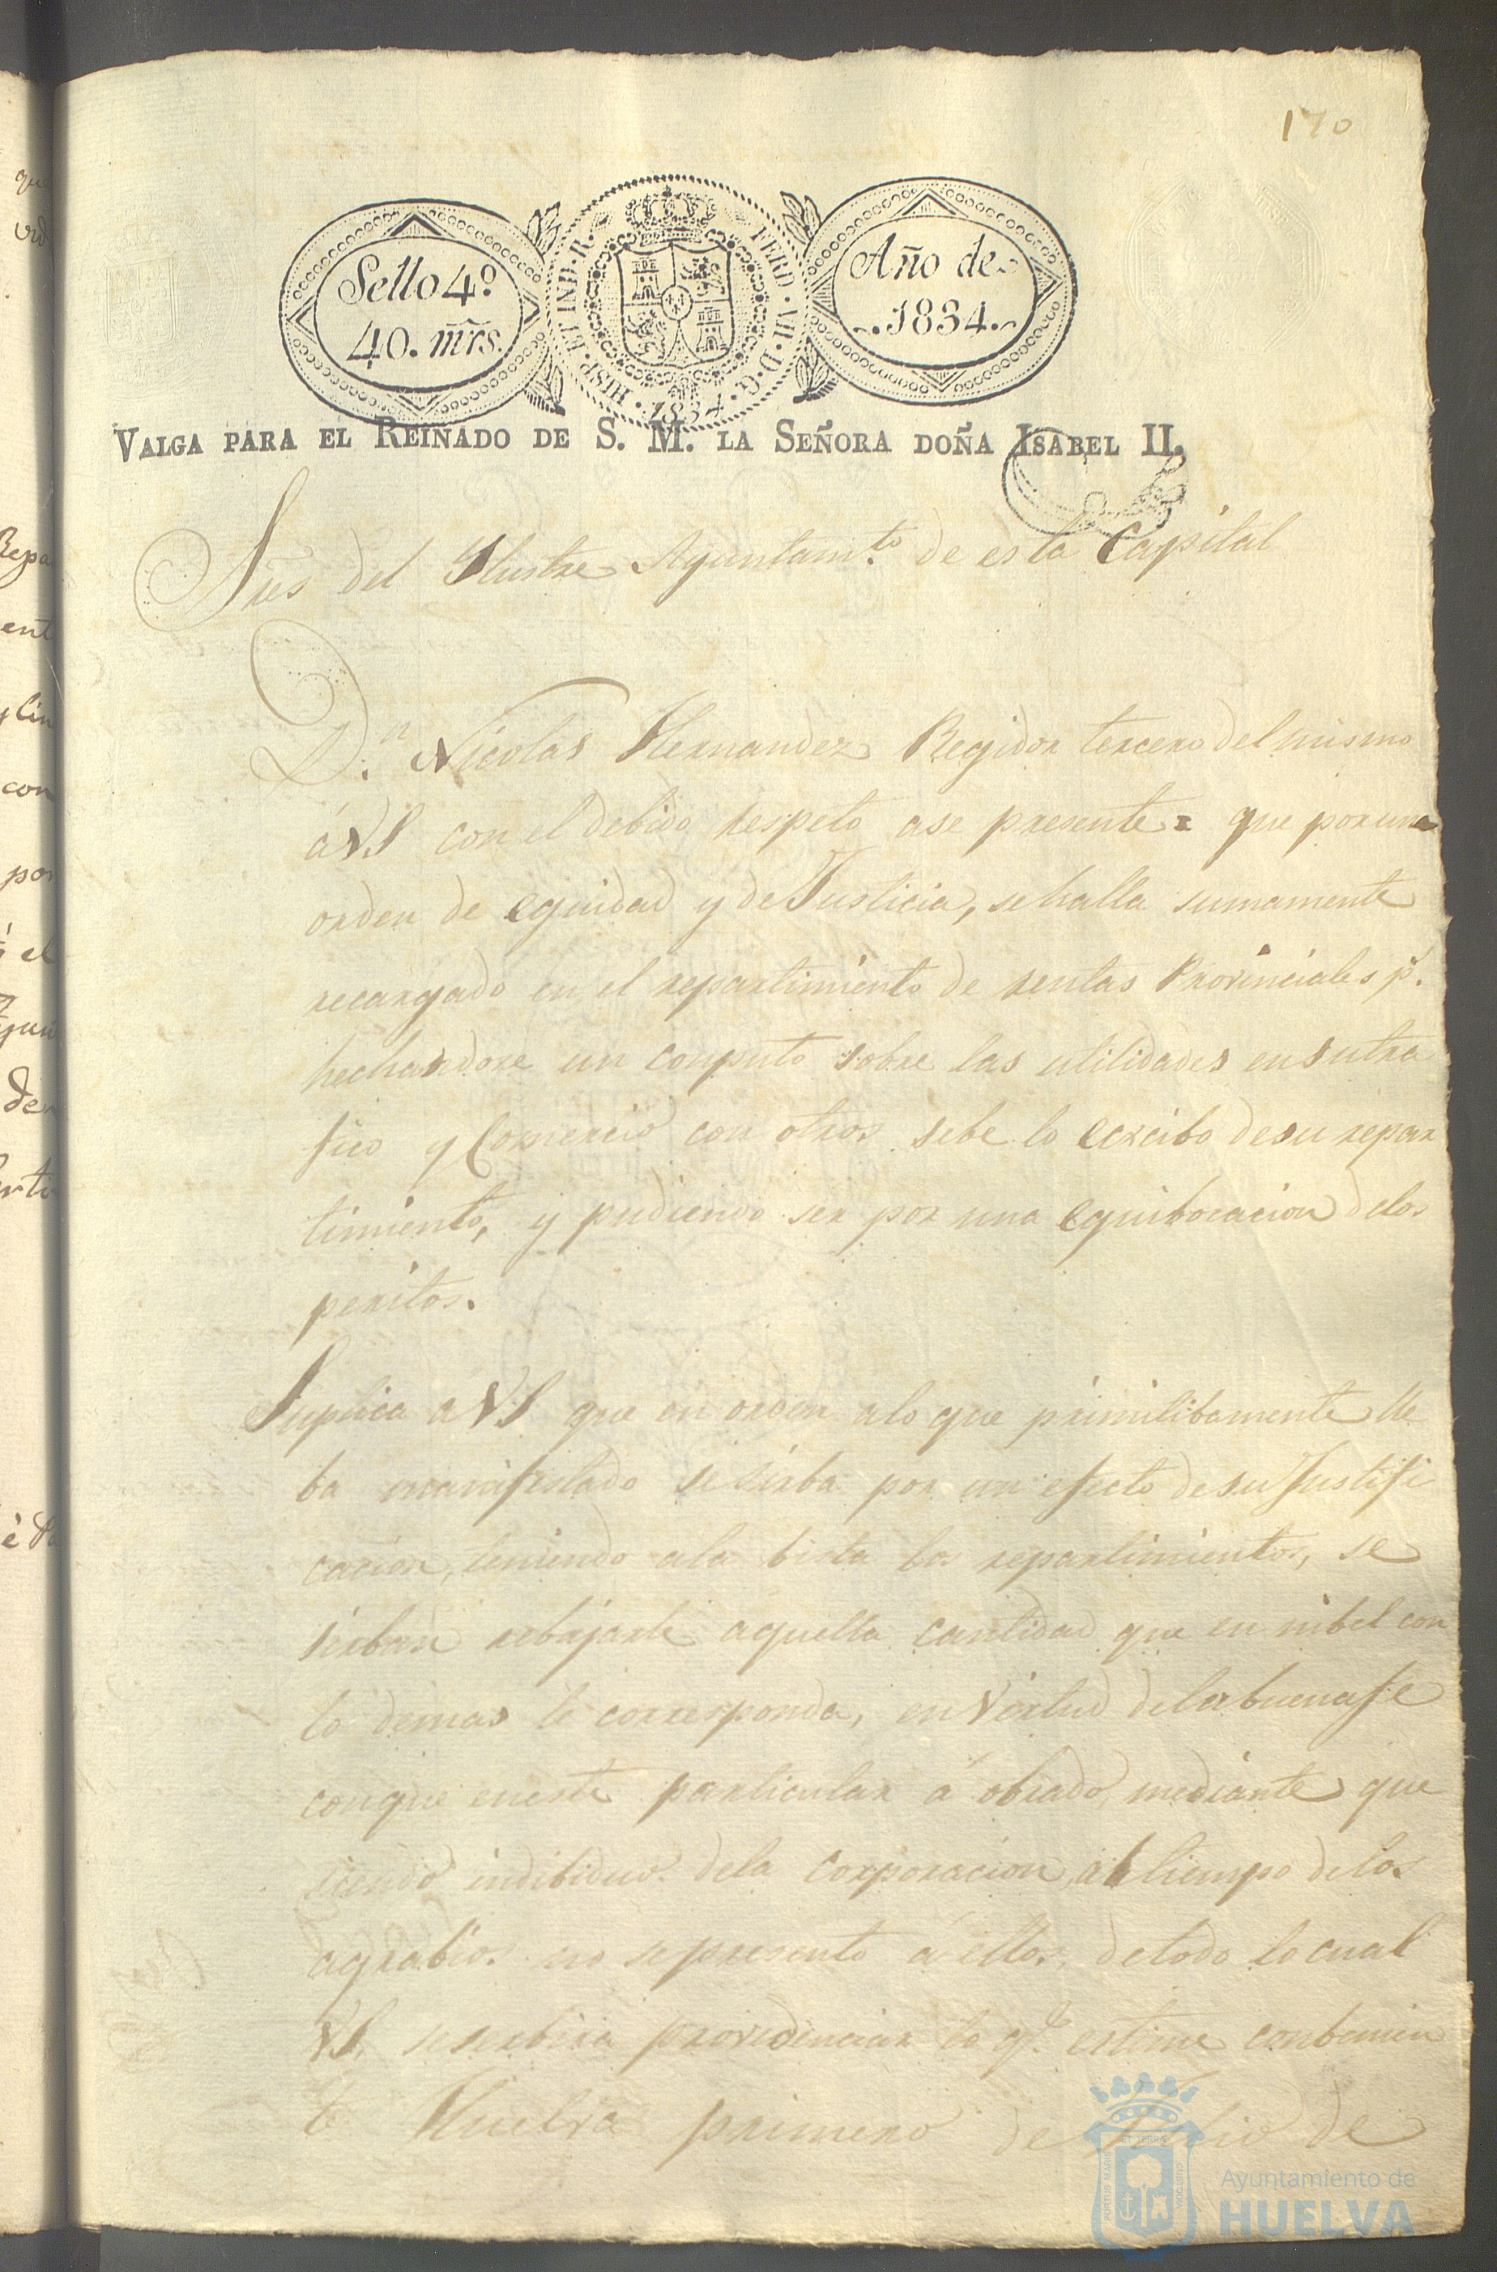 170
Sello 4º
40. mrs.
HISP. ET IND. R. FERD. VII. D. G. 1834.
Año de
1834.
VALGA PARA EL REINADO DE S. M. LA SEÑORA DOÑA ISABEL II.
Sres del Ilustre Ayuntam.to de esta Capital
D.n Nicolas Hernandez Regidor tercero del mismo
á VS con el debido respeto ase presente = que por una
orden de equidad y de Justicia, se halla sumamente
recargado en el repartimiento de rentas Provinciales p.r
hechandose un conputo sobre las utilidades en su tra
fico y Comercio con otros sebe lo ecxcibo de su repar
timiento, y pudiendo ser por una equibocacion delos
peritos.
Suplica a VS que en orden a lo que primitibamente lle
ba manifestado se sirba por un efecto de su Justifi
cacion, teniendo ala bista los repartimientos, se
sirban rebajarle aquella cantidad que en nibel con
lo demas le corresponda, en Virtud dela buena fe
conque eneste particular á obrado, mediante que
siendo indibiduo dela corporacion, al tiempo delos
agrabios no se presento á ellos, de todo lo cual
VS. se serbira providenciar lo q.e estime conbenien
te Huelva primero de Julio de
Ayuntamiento de
HUELVA